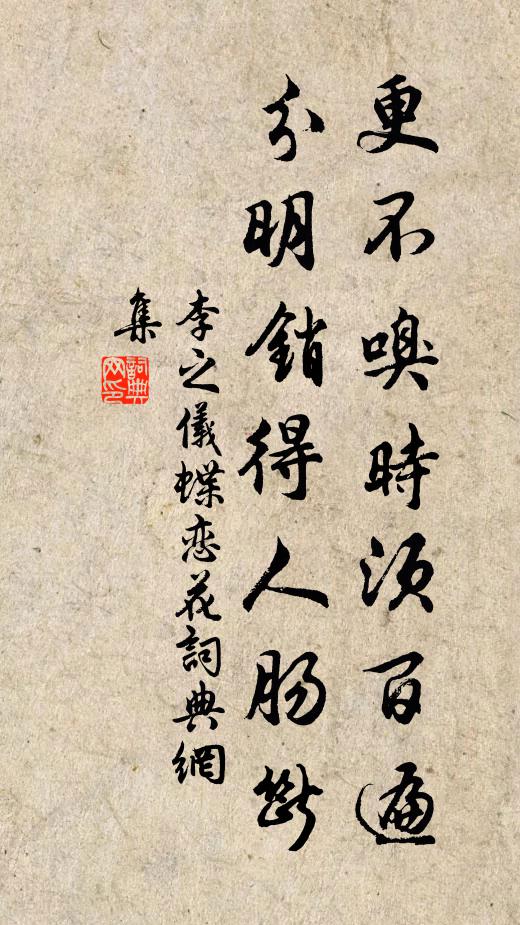 更不嗅時須百遍
分明銷得人腸斷
李之儀蝶恋花詞典網
集
詞典網印